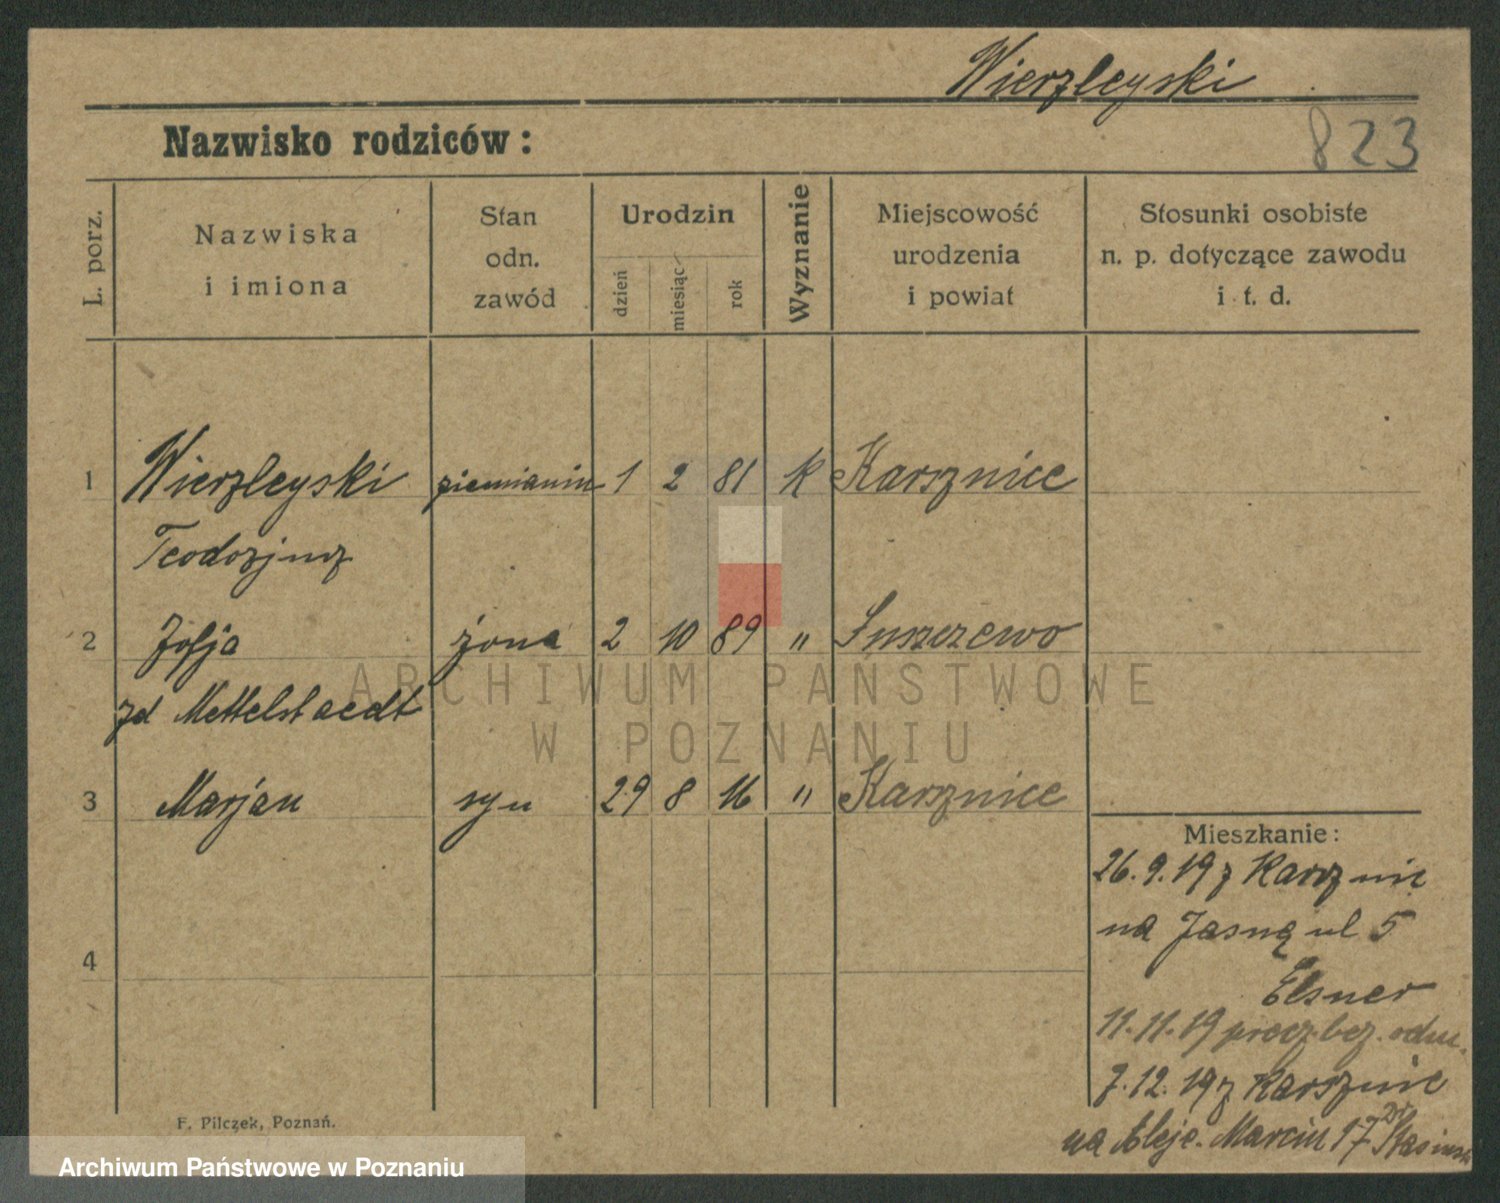 Wierzleyski
823
Nazwisko rodziców:
L. porz.
Nazwiska
i imiona
Stan
odn.
zawód
Urodzin
dzień
miesiąc
rok
Wyznanie
Miejscowość
urodzenia
i powiat
Stosunki osobiste
n. p. dotyczące zawodu
i t. d.
1 Wierzleyski ziemianin 1 2 81 k Karsznice
Teodozjusz
2 Zofja żona 2 10 89 " Suszczewo
zd Mettelstaedt
3 Marjan syn 29 8 16 " Karsznice
4
Mieszkanie:
26.9.19 z Karsznic
na Jasną ul 5
Elsner
11.11.19 precz bez odm.
7.12.19 z Karsznic
na Aleje. Marcin 17
F. Pilczek, Poznań.
ARCHIWUM PAŃSTWOWE
W POZNANIU
Archiwum Państwowe w Poznaniu